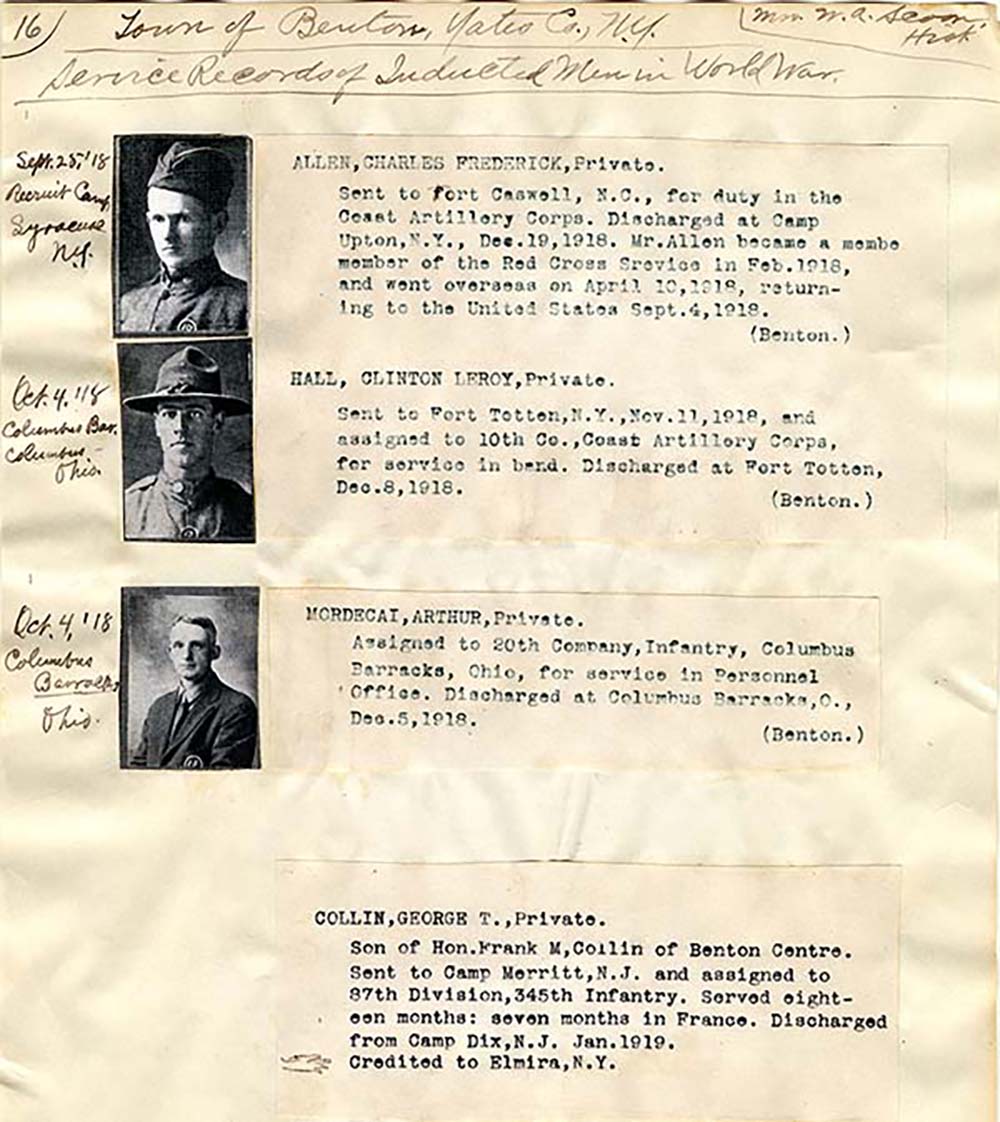 16) Town of Benton, Yates Co., N.Y.
Mrs. W.A. Scoon,
Hist
Service Records of Inducted Men in World War.
Sept. 25, '18
Recruit Camp
Syracuse
N.Y.
ALLEN,CHARLES FREDERICK,Private.
Sent to Fort Caswell, N.C., for duty in the
Coast Artillery Corps. Discharged at Camp
Upton,N.Y., Dec.19,1918. Mr.Allen became a membe
member of the Red Cross Srevice in Feb.1918,
and went overseas on April 10,1918, return-
ing to the United States Sept.4,1918.
(Benton.)
Oct. 4. '18
Columbus Bar.
Columbus.-
Ohio.
HALL, CLINTON LEROY,Private.
Sent to Fort Totten,N.Y.,Nov.11,1918, and
assigned to 10th Co.,Coast Artillery Corps,
for service in band. Discharged at Fort Totten,
Dec.8,1918.
(Benton.)
Oct. 4, '18
Columbus
Barracks,
Ohio.
MORDECAI,ARTHUR,Private.
Assigned to 20th Company,Infantry, Columbus
Barracks, Ohio, for service in Personnel
Office. Discharged at Columbus Barracks,O.,
Dec.5,1918.
(Benton.)
COLLIN,GEORGE T.,Private.
Son of Hon.Frank M,Collin of Benton Centre.
Sent to Camp Merritt,N.J. and assigned to
87th Division,345th Infantry. Served eight-
een months: seven months in France. Discharged
from Camp Dix,N.J. Jan.1919.
Credited to Elmira,N.Y.